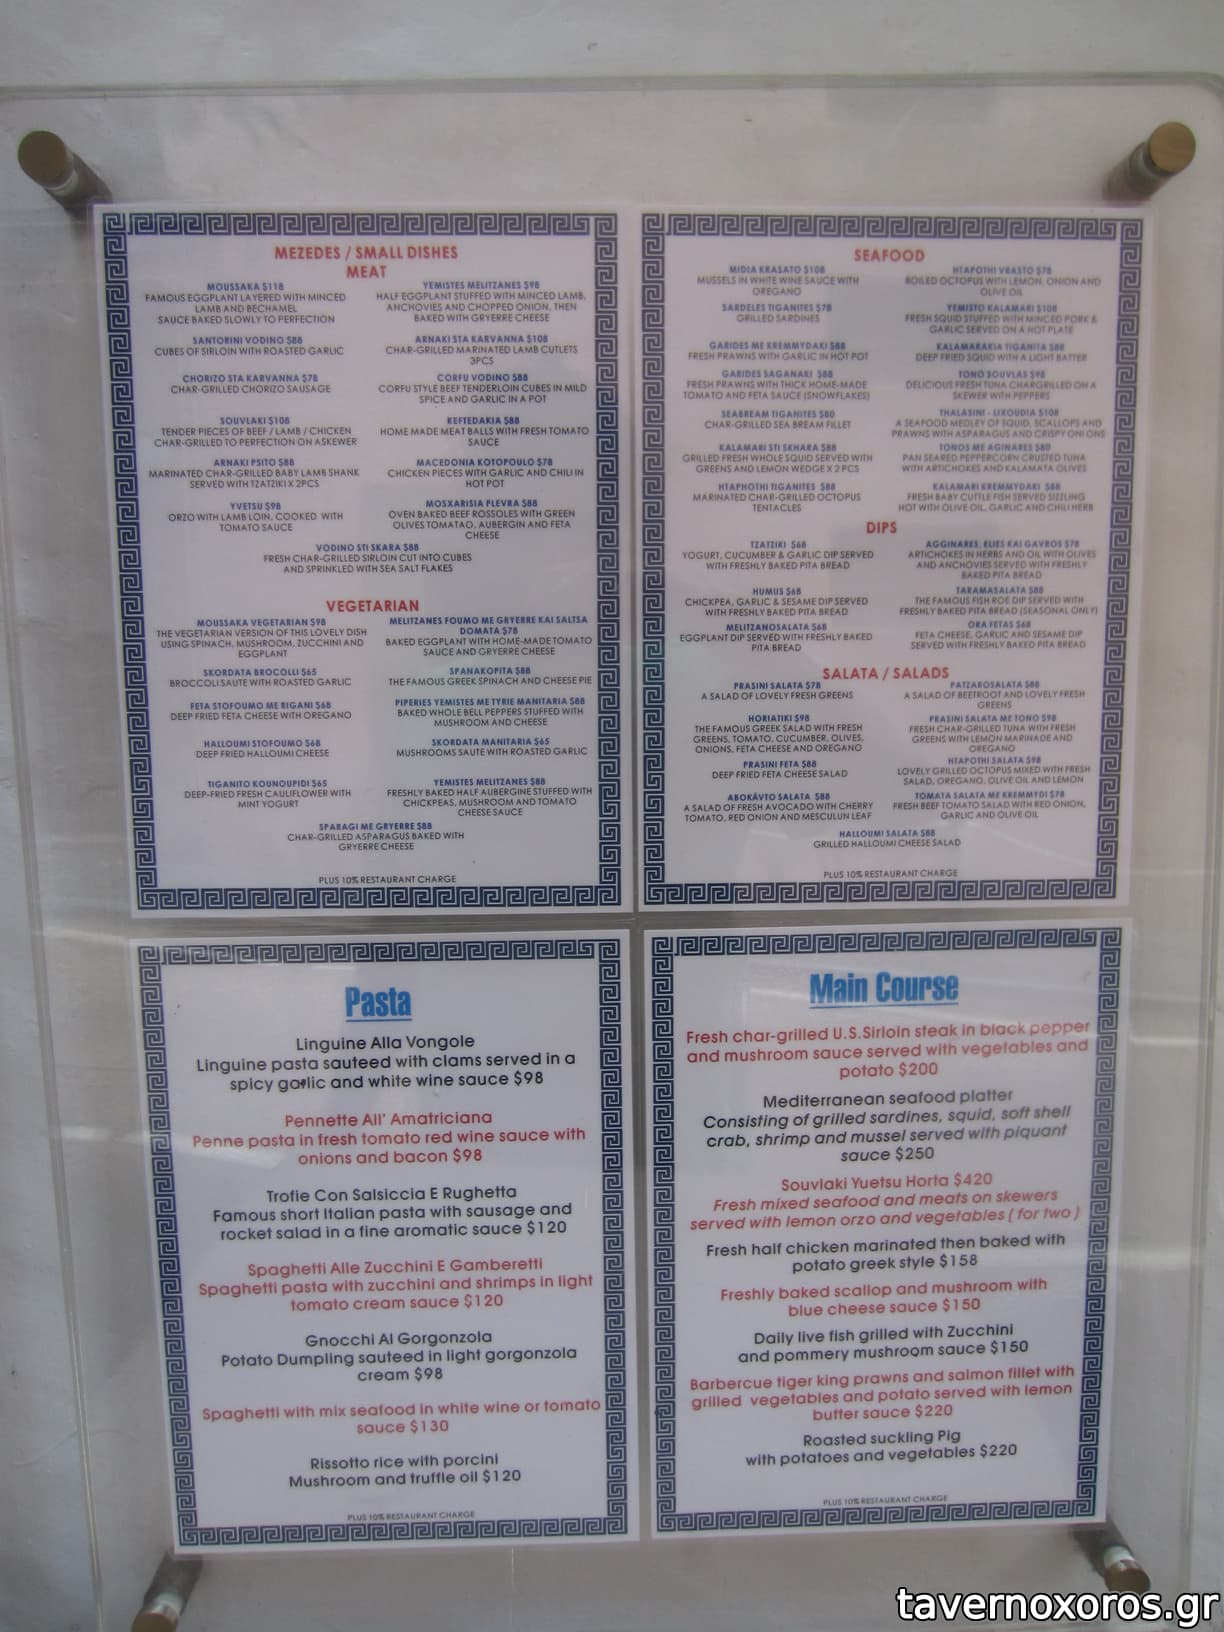 MEZEDES / SMALL DISHES
MEAT
MOUSSAKA $118
FAMOUS EGGPLANT LAYERED WITH MINCED
LAMB AND BECHAMEL
SAUCE BAKED SLOWLY TO PERFECTION
SANTORINI VODINO $88
CUBES OF SIRLOIN WITH ROASTED GARLIC
CHORIZO STA KARVANNA $78
CHAR-GRILLED CHORIZO SAUSAGE
SOUVLAKI $108
TENDER PIECES OF BEEF / LAMB / CHICKEN
CHAR-GRILLED TO PERFECTION ON ASKEWER
ARNAKI PSITO $88
MARINATED CHAR-GRILLED BABY LAMB SHANK
SERVED WITH TZATZIKI X 2PCS
YVETSU $98
ORZO WITH LAMB LOIN, COOKED WITH
TOMATO SAUCE
YEMISTES MELITZANES $98
HALF EGGPLANT STUFFED WITH MINCED LAMB,
ANCHOVIES AND CHOPPED ONION, THEN
BAKED WITH GRYERRE CHEESE
ARNAKI STA KARVANNA $108
CHAR-GRILLED MARINATED LAMB CUTLETS
3PCS
CORFU VODINO $88
CORFU STYLE BEEF TENDERLOIN CUBES IN MILD
SPICE AND GARLIC IN A POT
KEFTEDAKIA $88
HOME MADE MEAT BALLS WITH FRESH TOMATO
SAUCE
MACEDONIA KOTOPOULO $78
CHICKEN PIECES WITH GARLIC AND CHILI IN
HOT POT
MOSXARISIA PLEVRA $88
OVEN BAKED BEEF ROSSOLES WITH GREEN
OLIVES TOMATAO, AUBERGIN AND FETA
CHEESE
VODINO STI SKARA $88
FRESH CHAR-GRILLED SIRLOIN CUT INTO CUBES
AND SPRINKLED WITH SEA SALT FLAKES
VEGETARIAN
MOUSSAKA VEGETARIAN $98
THE VEGETARIAN VERSION OF THIS LOVELY DISH
USING SPINACH, MUSHROOM, ZUCCHINI AND
EGGPLANT
SKORDATA BROCOLLI $65
BROCCOLI SAUTE WITH ROASTED GARLIC
FETA STOFOUMO ME RIGANI $68
DEEP FRIED FETA CHEESE WITH OREGANO
HALLOUMI STOFOUMO $68
DEEP FRIED HALLOUMI CHEESE
TIGANITO KOUNOUPIDI $65
DEEP-FRIED FRESH CAULIFLOWER WITH
MINT YOGURT
MELITZANES FOUMO ME GRYERRE KAI SALTSA
DOMATA $78
BAKED EGGPLANT WITH HOME-MADE TOMATO
SAUCE AND GRYERRE CHEESE
SPANAKOPITA $88
THE FAMOUS GREEK SPINACH AND CHEESE PIE
PIPERIES YEMISTES ME TYRIE MANITARIA $88
BAKED WHOLE BELL PEPPERS STUFFED WITH
MUSHROOM AND CHEESE
SKORDATA MANITARIA $65
MUSHROOMS SAUTE WITH ROASTED GARLIC
YEMISTES MELITZANES $88
FRESHLY BAKED HALF AUBERGINE STUFFED WITH
CHICKPEAS, MUSHROOM AND TOMATO
CHEESE SAUCE
SPARAGI ME GRYERRE $88
CHAR-GRILLED ASPARAGUS BAKED WITH
GRYERRE CHEESE
PLUS 10% RESTAURANT CHARGE
SEAFOOD
MIDIA KRASATO $108
MUSSELS IN WHITE WINE SAUCE WITH
OREGANO
SARDELES TIGANITES $78
GRILLED SARDINES
GARIDES ME KREMMYDAKI $88
FRESH PRAWNS WITH GARLIC IN HOT POT
GARIDES SAGANAKI $88
FRESH PRAWNS WITH THICK HOME-MADE
TOMATO AND FETA SAUCE (SNOWFLAKES)
SEABREAM TIGANITES $80
CHAR-GRILLED SEA BREAM FILLET
KALAMARI STI SKHARA $88
GRILLED FRESH WHOLE SQUID SERVED WITH
GREENS AND LEMON WEDGE X 2 PCS
HTAPHOTHI TIGANITES $88
MARINATED CHAR-GRILLED OCTOPUS
TENTACLES
HTAPOTHI VRASTO $78
BOILED OCTOPUS WITH LEMON, ONION AND
OLIVE OIL
YEMISTO KALAMARI $108
FRESH SQUID STUFFED WITH MINCED PORK &
GARLIC SERVED ON A HOT PLATE
KALAMARAKIA TIGANITA $88
DEEP FRIED SQUID WITH A LIGHT BATTER
TONO SOUVLAS $98
DELICIOUS FRESH TUNA CHARGRILLED ON A
SKEWER WITH PEPPERS
THALASINI - LIKOUDIA $108
A SEAFOOD MEDLEY OF SQUID, SCALLOPS AND
PRAWNS WITH ASPARAGUS AND CRISPY ONIONS
TONOS ME AGINARES $80
PAN SEARED PEPPERCORN CRUSTED TUNA
WITH ARTICHOKES AND KALAMATA OLIVES
KALAMARI KREMMYDAKI $88
FRESH BABY CUTTLE FISH SERVED SIZZLING
HOT WITH OLIVE OIL, GARLIC AND CHILI HERB
DIPS
TZATZIKI $68
YOGURT, CUCUMBER & GARLIC DIP SERVED
WITH FRESHLY BAKED PITA BREAD
HUMUS $68
CHICKPEA, GARLIC & SESAME DIP SERVED
WITH FRESHLY BAKED PITA BREAD
MELITZANOSALATA $68
EGGPLANT DIP SERVED WITH FRESHLY BAKED
PITA BREAD
AGGINARES, ELIES KAI GAVROS $78
ARTICHOKES IN HERBS AND OIL WITH OLIVES
AND ANCHOVIES SERVED WITH FRESHLY
BAKED PITA BREAD
TARAMASALATA $88
THE FAMOUS FISH ROE DIP SERVED WITH
FRESHLY BAKED PITA BREAD (SEASONAL ONLY)
ORA FETAS $68
FETA CHEESE, GARLIC AND SESAME DIP
SERVED WITH FRESHLY BAKED PITA BREAD
SALATA / SALADS
PRASINI SALATA $78
A SALAD OF LOVELY FRESH GREENS
HORIATIKI $98
THE FAMOUS GREEK SALAD WITH FRESH
GREENS, TOMATO, CUCUMBER, OLIVES,
ONIONS, FETA CHEESE AND OREGANO
PRASINI FETA $88
DEEP FRIED FETA CHEESE SALAD
ABOKAVTO SALATA $88
A SALAD OF FRESH AVOCADO WITH CHERRY
TOMATO, RED ONION AND MESCULUN LEAF
PATZAROSALATA $88
A SALAD OF BEETROOT AND LOVELY FRESH
GREENS
PRASINI SALATA ME TONO $98
FRESH CHAR-GRILLED TUNA WITH FRESH
GREENS WITH LEMON MARINADE AND
OREGANO
HTAPOTHI SALATA $98
LOVELY GRILLED OCTOPUS MIXED WITH FRESH
SALAD, OREGANO, OLIVE OIL AND LEMON
TOMATA SALATA ME KREMMYDI $78
FRESH BEEF TOMATO SALAD WITH RED ONION,
GARLIC AND OLIVE OIL
HALLOUMI SALATA $88
GRILLED HALLOUMI CHEESE SALAD
PLUS 10% RESTAURANT CHARGE
Pasta
Linguine Alla Vongole
Linguine pasta sauteed with clams served in a
spicy garlic and white wine sauce $98
Pennette All' Amatriciana
Penne pasta in fresh tomato red wine sauce with
onions and bacon $98
Trofie Con Salsiccia E Rughetta
Famous short Italian pasta with sausage and
rocket salad in a fine aromatic sauce $120
Spaghetti Alle Zucchini E Gamberetti
Spaghetti pasta with zucchini and shrimps in light
tomato cream sauce $120
Gnocchi Al Gorgonzola
Potato Dumpling sauteed in light gorgonzola
cream $98
Spaghetti with mix seafood in white wine or tomato
sauce $130
Rissotto rice with porcini
Mushroom and truffle oil $120
PLUS 10% RESTAURANT CHARGE
Main Course
Fresh char-grilled U.S.Sirloin steak in black pepper
and mushroom sauce served with vegetables and
potato $200
Mediterranean seafood platter
Consisting of grilled sardines, squid, soft shell
crab, shrimp and mussel served with piquant
sauce $250
Souvlaki Yuetsu Horta $420
Fresh mixed seafood and meats on skewers
served with lemon orzo and vegetables ( for two )
Fresh half chicken marinated then baked with
potato greek style $158
Freshly baked scallop and mushroom with
blue cheese sauce $150
Daily live fish grilled with Zucchini
and pommery mushroom sauce $150
Barbercue tiger king prawns and salmon fillet with
grilled vegetables and potato served with lemon
butter sauce $220
Roasted suckling Pig
with potatoes and vegetables $220
PLUS 10% RESTAURANT CHARGE
tavernoxoros.gr